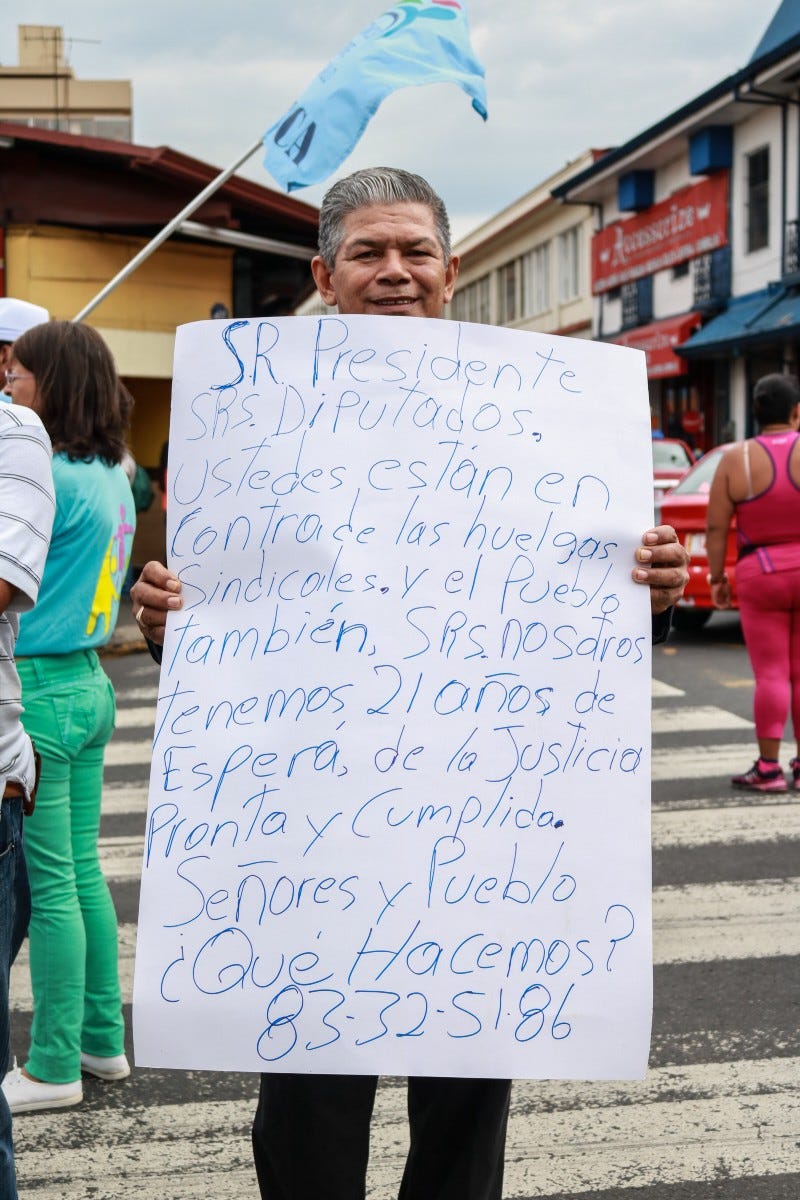 CA
Accessorize
S.R. Presidente
SRS. Diputados,
ustedes están en
Contra de las huelgas
Sindicales. y el Pueblo
también, SRS. nosotros
tenemos 21 años de
Esperá, de la Justicia
Pronta y Cumplida.
Señores y Pueblo
¿Qué Hacemos?
83-32-51-86